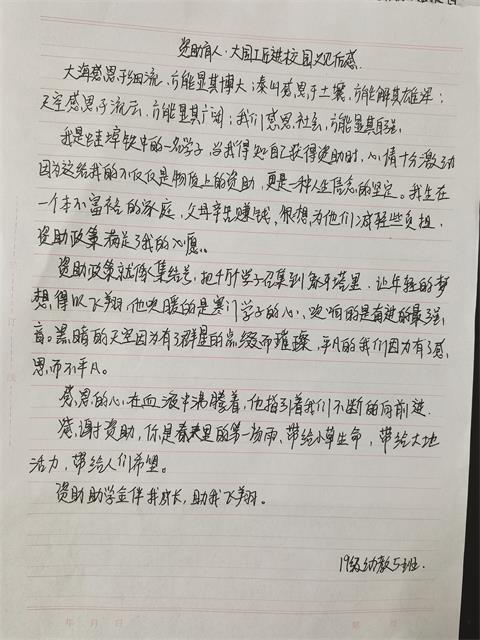 资助育人·大国工匠进校园观后感
大海感恩于细流,方能显其博大;泰山感恩于土壤,方能解其雄浑;
天空感恩于流云,方能显其广阔;我们感恩社会,方能显其自强。
我是蚌埠铁中的一名学子,当我得知自己获得资助时,心情十分激动
因为这给我的不仅仅是物质上的资助,更是一种人生信念的坚定。我生在
一个本不富裕的家庭,父母辛苦赚钱,很想为他们减轻些负担,
资助政策满足了我的心愿。
资助政策就像集结号,把千所学子召集到象牙塔里,让年轻的梦
想得以飞翔,他吹暖的是寒门学子的心,吹响的是奋进的最强
音。黑暗的天空因为有了群星的点缀而璀璨,平凡的我们因为有了感
恩而不平凡。
感恩的心在血液中沸腾着,他指引着我们不断的向前进.
感谢资助,你是春天里的第一场雨,带给小草生命,带给大地
活力,带给人们希望。
资助助学金伴我成长,助我飞翔。
19级幼教5班.
年 月 日
第 页